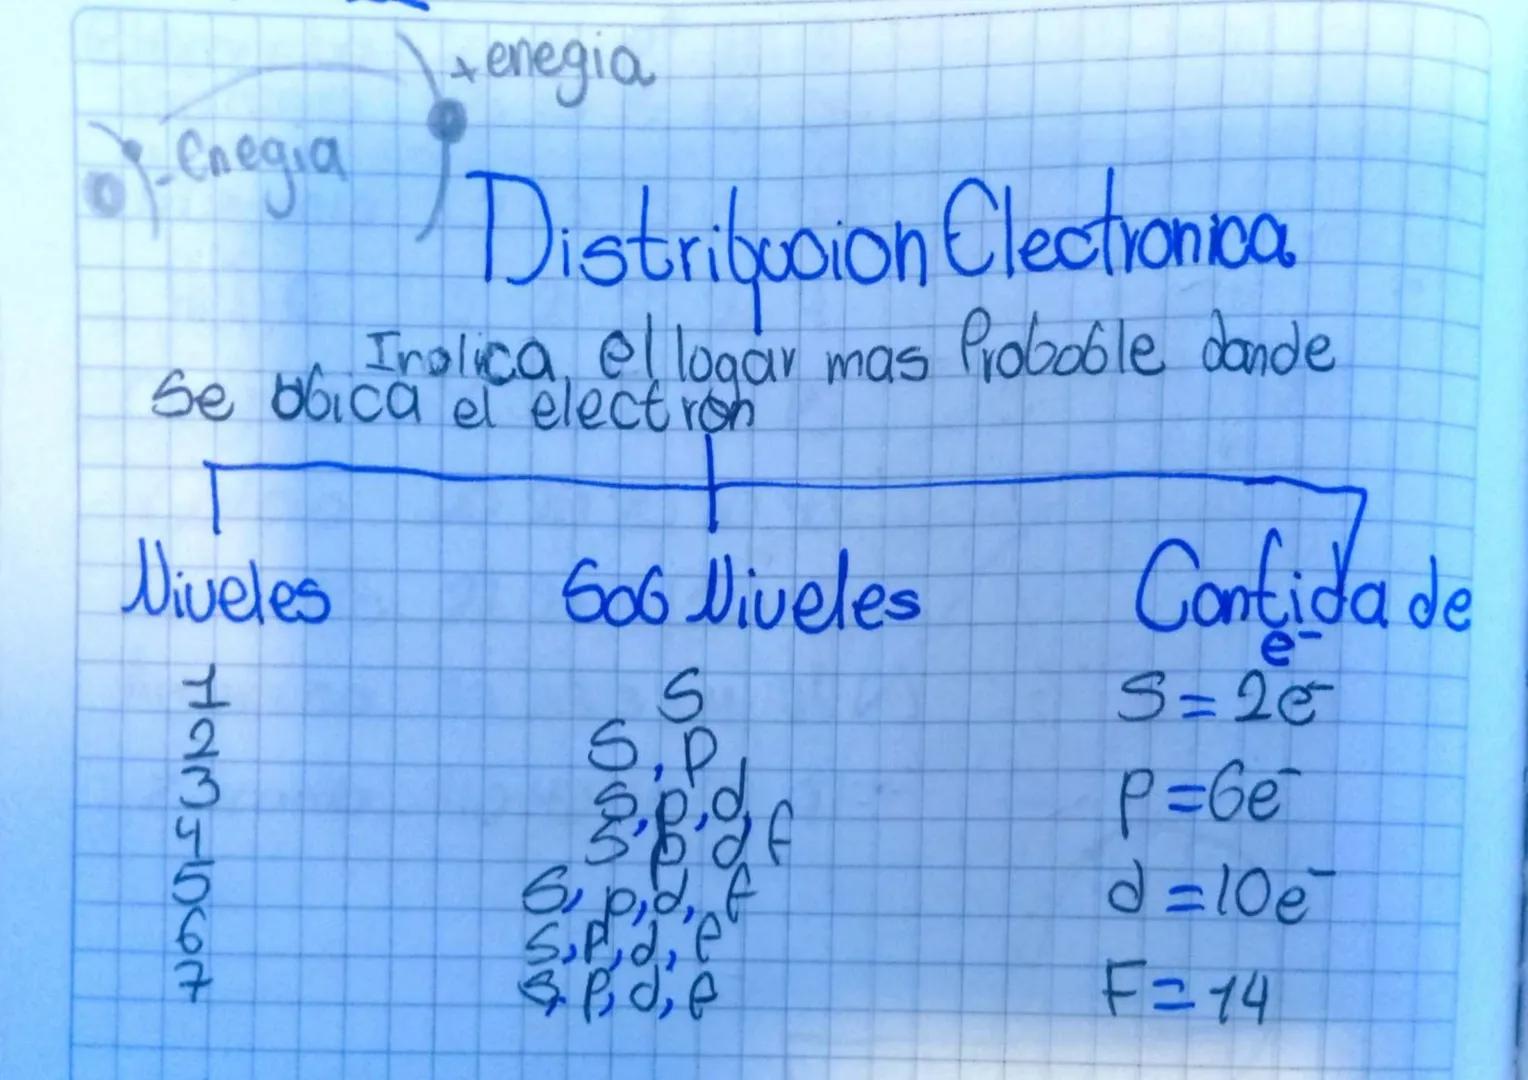 + enegia
- Enegia
Distribucion Electronica
Indica el logar mas Probable donde
se obica el electron
Niveles Sob Niveles Cantida de
e-
1 S S = 2e-
2 S, p
3 s, p, d, p = 6e-
4 s p d f
5 S, p, d, f d = 10e-
6 s, p, d, e
7 s, p, d, e F = 14